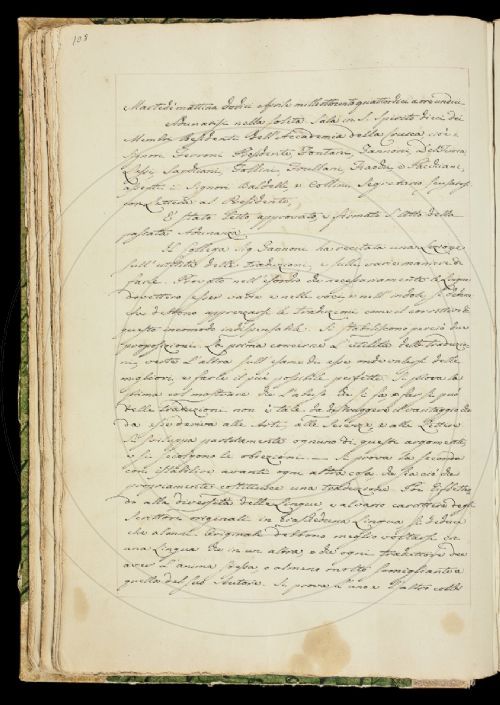 108
Martedì mattina dodici Aprile milleottocentoquattordici a ore undici
Adunatisi nella solita Sala in S. Spirito dieci dei
Membri Residenti dell'Accademia della Crusca cioè i
Signori Ferroni Presidente, Fontani, Zannoni, Del Furia
Lessi, Sarchiani, Collini, Friullani, Fiacchi, e Pacchiani,
assenti i Signori Baldelli, e Collini Segretario scusatosi
con Lettera al Presidente,
È stato letto approvato, e firmato l'Atto della
passata Adunanza.
Il Collega Sig. Zannoni ha recitata una Lezione
sull'utilità delle traduzioni, e sulle varie maniere di
farle. Provato nell'esordio che necessariamente le Lingue
dovettero esser varie e nelle voci, e nell'indole, si
si debbono apprezzarsi le traduzioni come il correttivo di
questo incomodo indispensabile. Si stabiliscono perciò due
proposizioni. La prima concerne l'utilità delle traduzio
ni, verte l'altra sull'esame di esse onde valersi delle
migliori, e farle il più possibile perfette. Si prova la
prima col mostrare che l'abuso che si fa, e far si può
delle traduzioni non è tale, da distruggere il vantaggio che
da esse deriva alle Arti, alle Scienze, e alle Lettere
Si sviluppa partitamente ognuno di questi argomenti,
e si sciolgono le obiezioni. — Si prova la seconda
con stabilire avanti ogni altra cosa da ciò che
propriamente costituisce una traduzione. Per rispetto
alla diversità delle Lingue e al vario carattere degli
Scrittori originali in ciascheduna Lingua si deduce
che alcuni Originali debbono meglio voltarsi in
una Lingua che in un'altra, e che ogni traduttore dee
aver l'anima stessa, o almeno molto somigliante a
quella del suo Autore. Si prova l'uno e l'altro colle